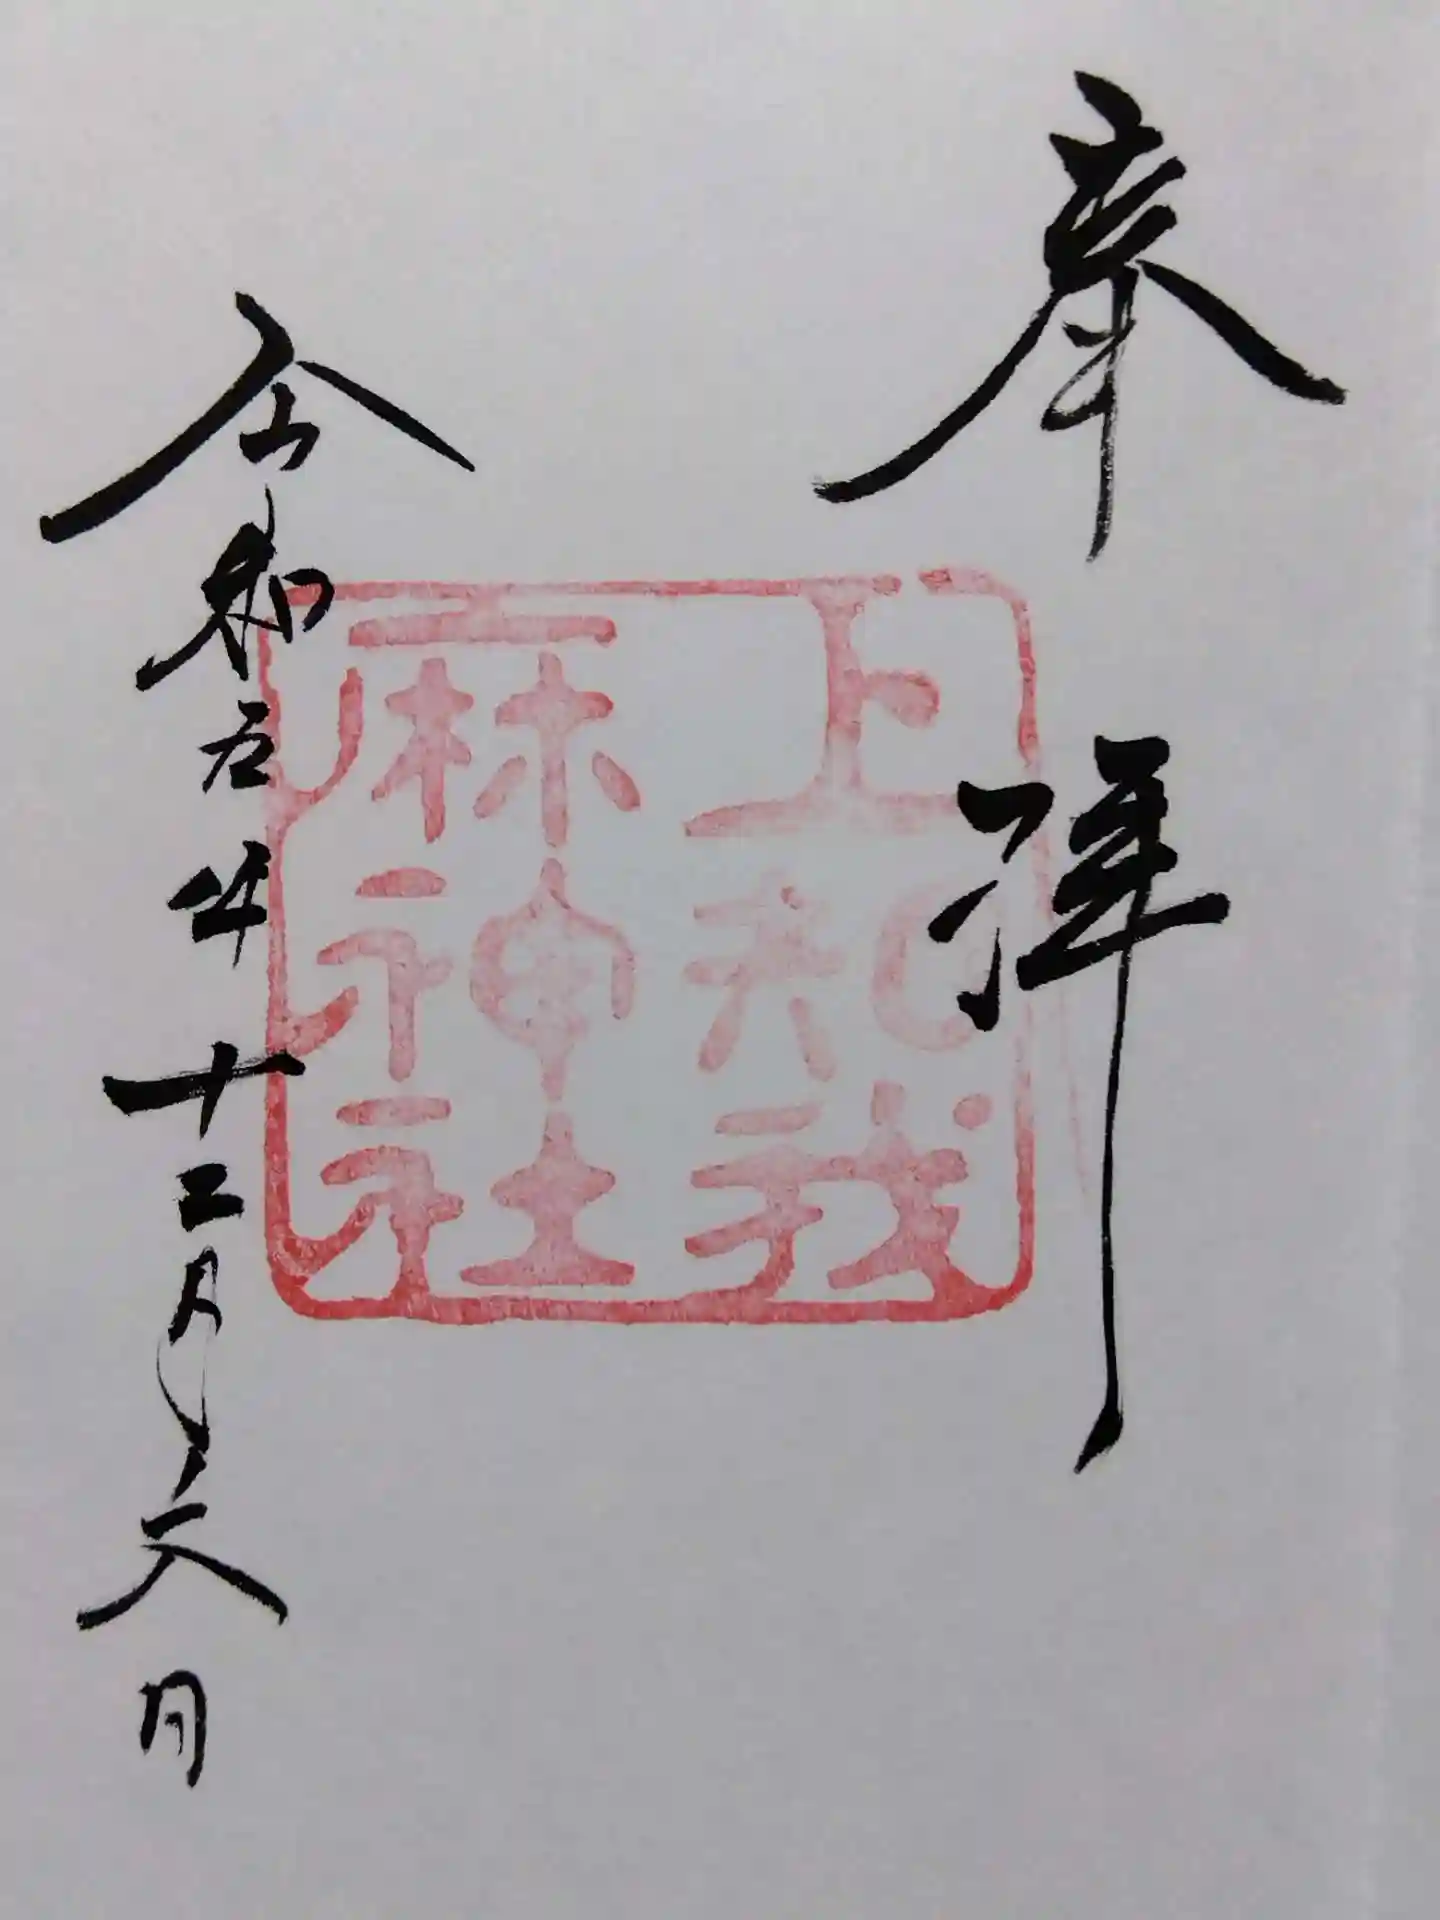 奉拝
上知我麻神社
令和五年十二月六日